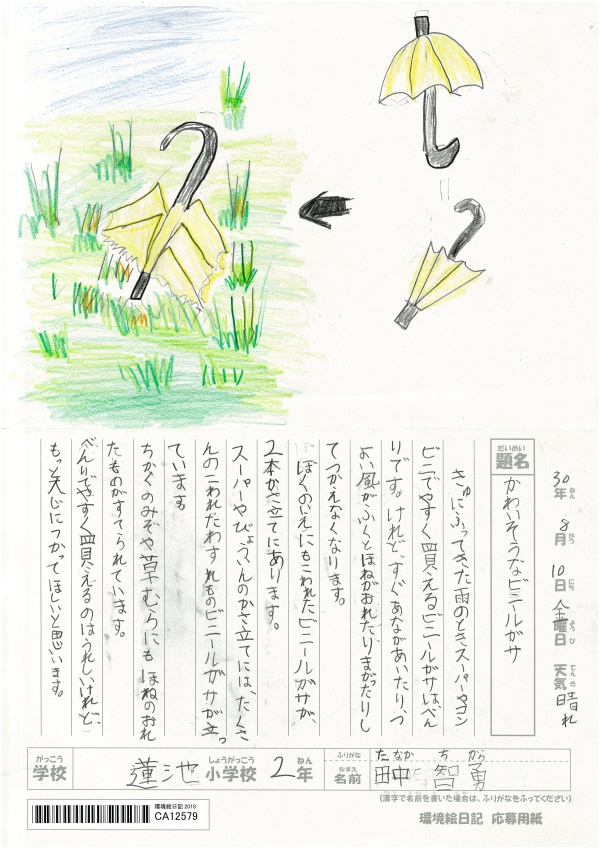 30年ねん 8月がつ 10日にち 金曜日ようび 天気てんき 晴れ
題名だいめい
かわいそうなビニールがサ
きゅにふってきた雨のときスーパーやコン
ビニでやすく買えるビニールがサは、べん
りです。けれど、すぐあながあいたり、つ
よい風がふくとほねがおれたり、まがったりし
てつかえなくなります。
ぼくのいえにもこわれたビニールがサが、
2本かさ立てにあります。
スーパーやびょういんのかさ立てには、たくさ
んのこわれたわすれものビニールがサが立っ
ています
ちかくのみぞや草むらにもほねのおれ
たものがすてられています。
べんりでやすく買えるのはうれしいけれど、
もっと大じにつかってほしいと思います。
学校がっこう 蓮池 小学校しょうがっこう 2年ねん
ふりがな たなか ちから
名前なまえ 田中 智勇
(漢字で名前を書いた場合は、ふりがなをふってください)
環境絵日記 2018
CA12579
環境絵日記 応募用紙